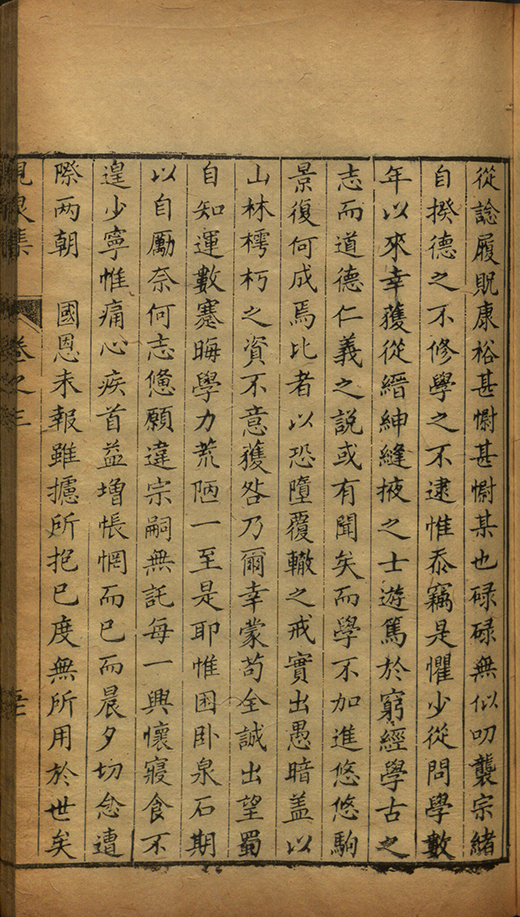 從諗履貺康裕甚慰甚慰某也碌碌無似叨襲宗緒
自揆德之不修學之不逮惟忝竊是懼少從問學數
年以來幸獲從縉紳縫掖之士遊篤於窮經學古之
志而道德仁義之説或有聞矣而學不加進悠悠駒
景復何成焉比者以恐墮覆轍之戒實出愚暗盖以
山林樗朽之資不意獲咎乃爾幸蒙苟全誠出望蜀
自知運數蹇晦學力荒陋一至是耶惟困卧泉石期
以自勵奈何志憊願違宗嗣無託每一興懷寢食不
遑少寧惟痛心疾首益增悵惘而已而晨夕切念遭
際两朝　國恩未報雖攄所抱已度無所用於世矣
峴泉集
卷之三